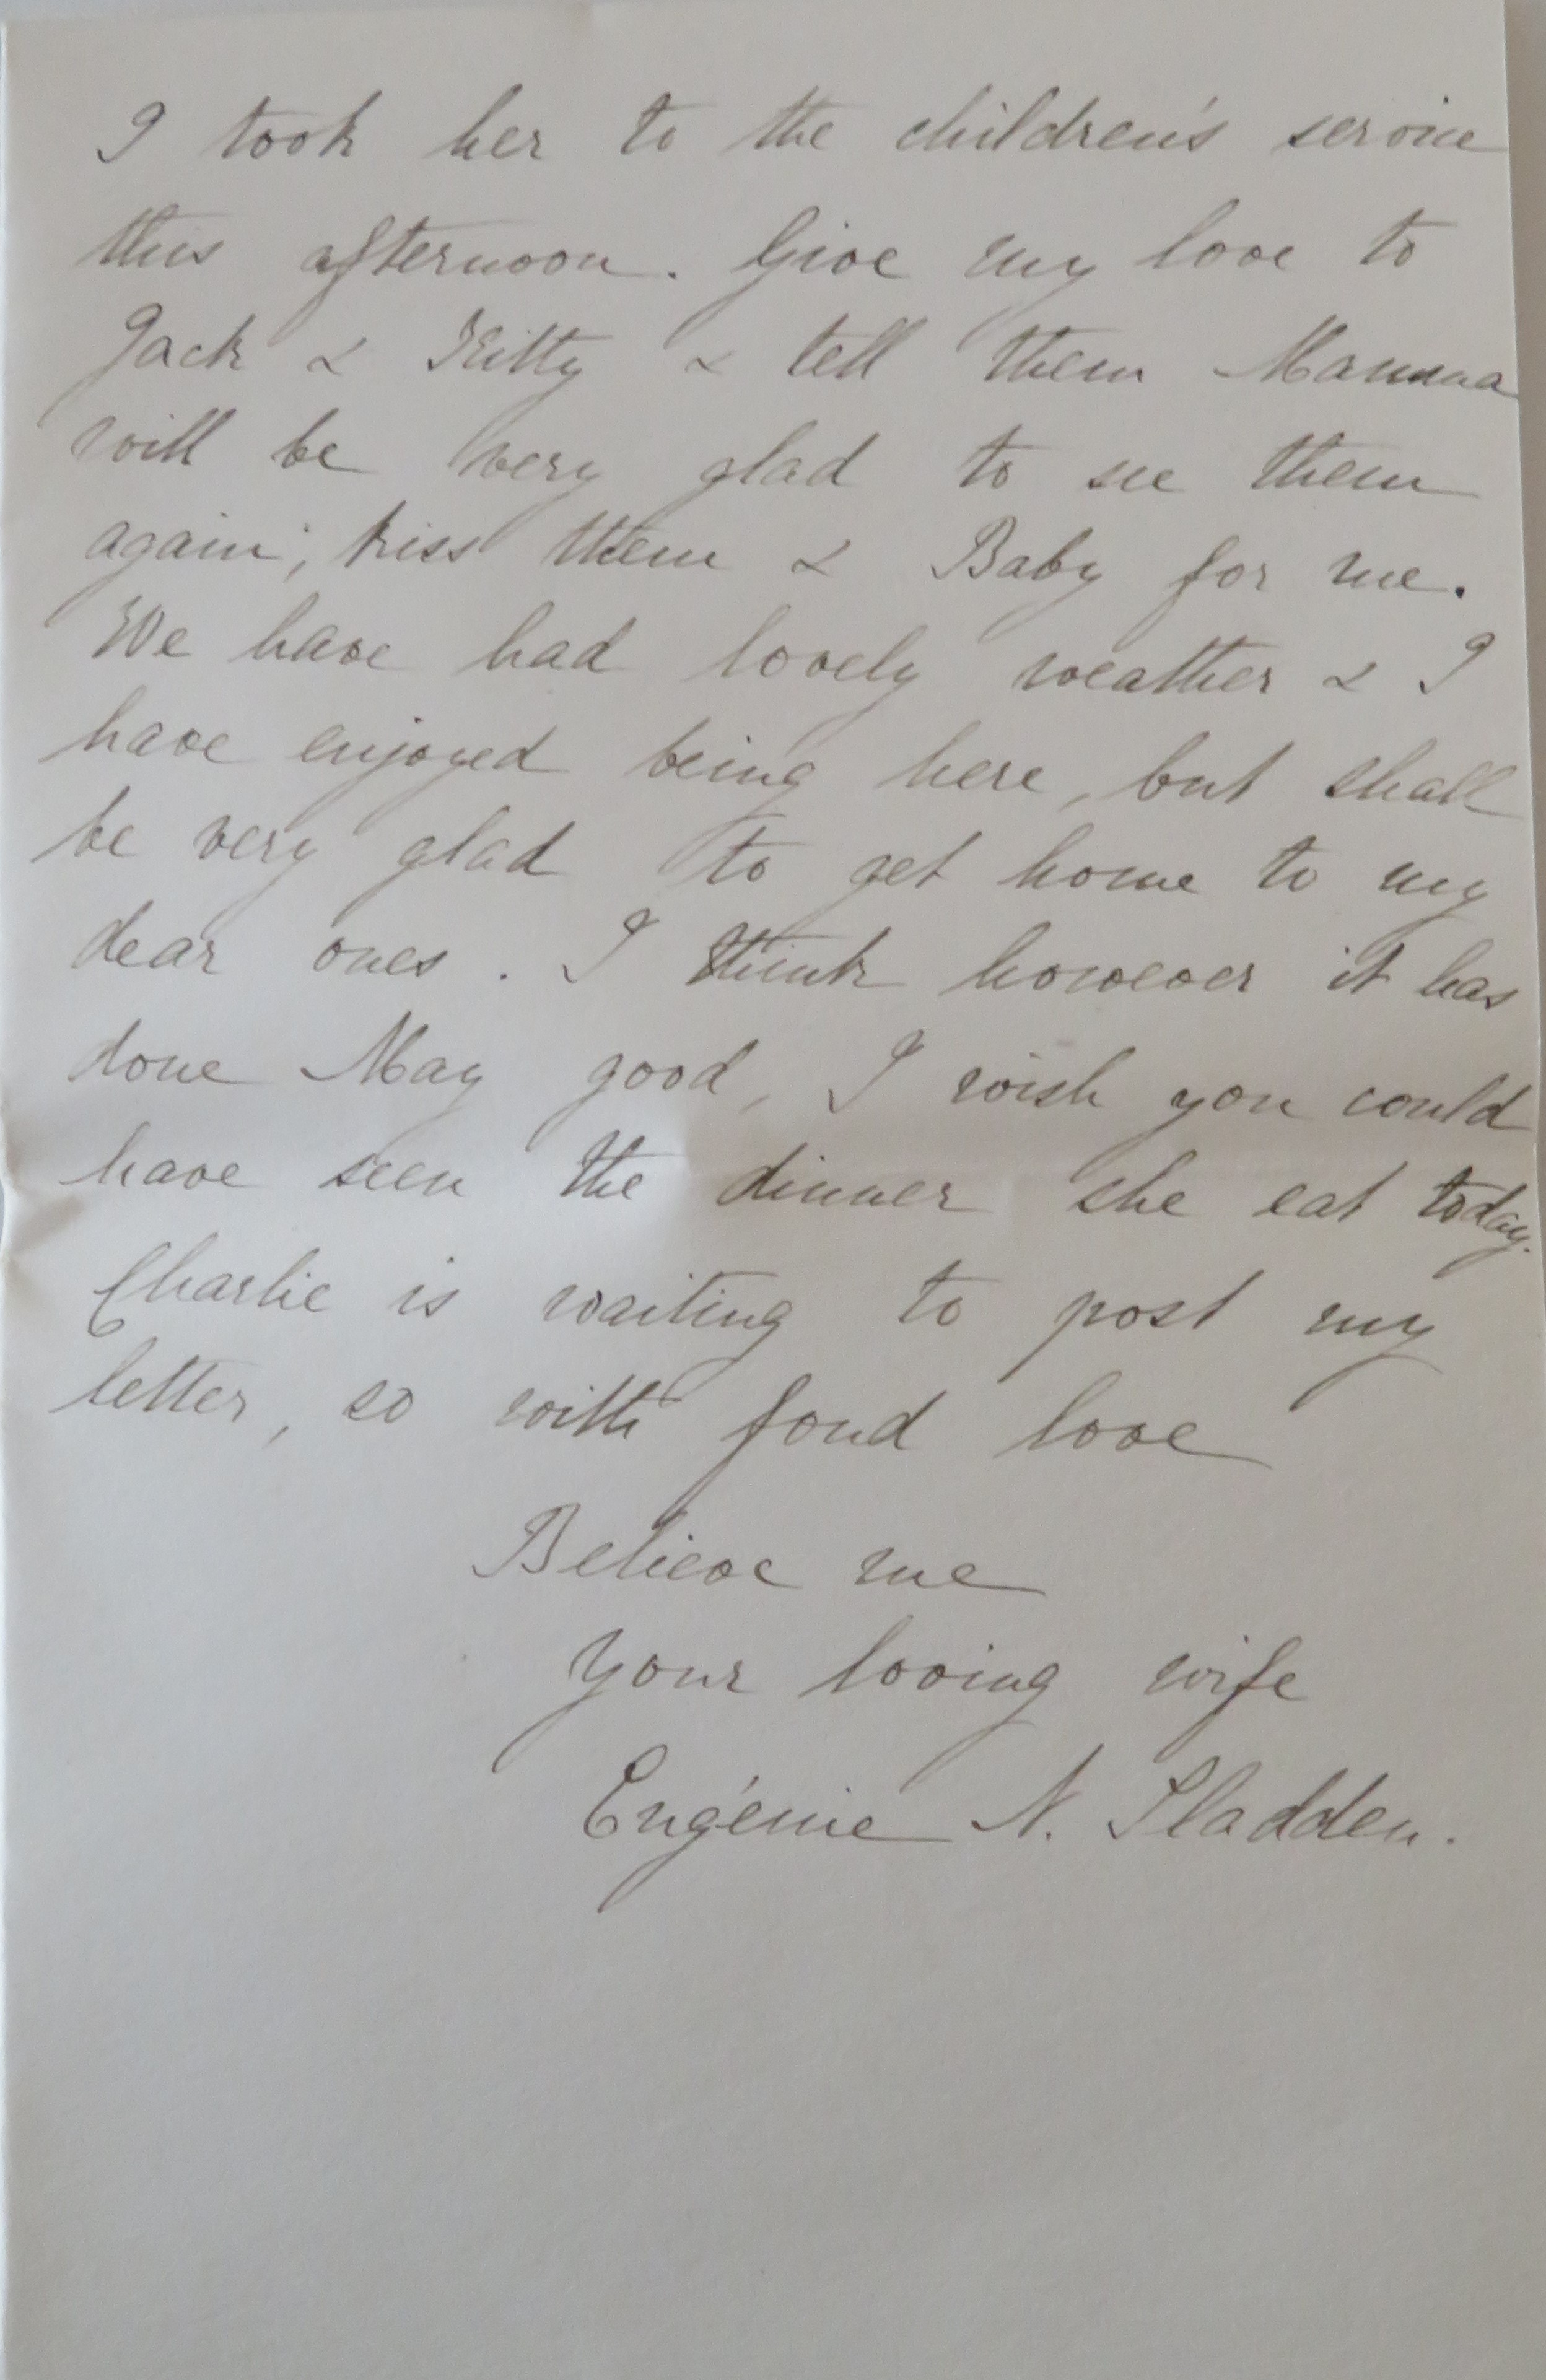 I took her to the children's service
this afternoon. Give my love to
Jack & Kitty & tell them Mamma
will be very glad to see them
again; kiss them & Baby for me.
We have had lovely weather & I
have enjoyed being here, but shall
be very glad to get home to my
dear ones. I think however it has
done May good, I wish you could
have seen the dinner she eat today.
Charlie is waiting to post my
letter, so with fond love
Believe me
Your loving wife
Eugénie N. Sladden.